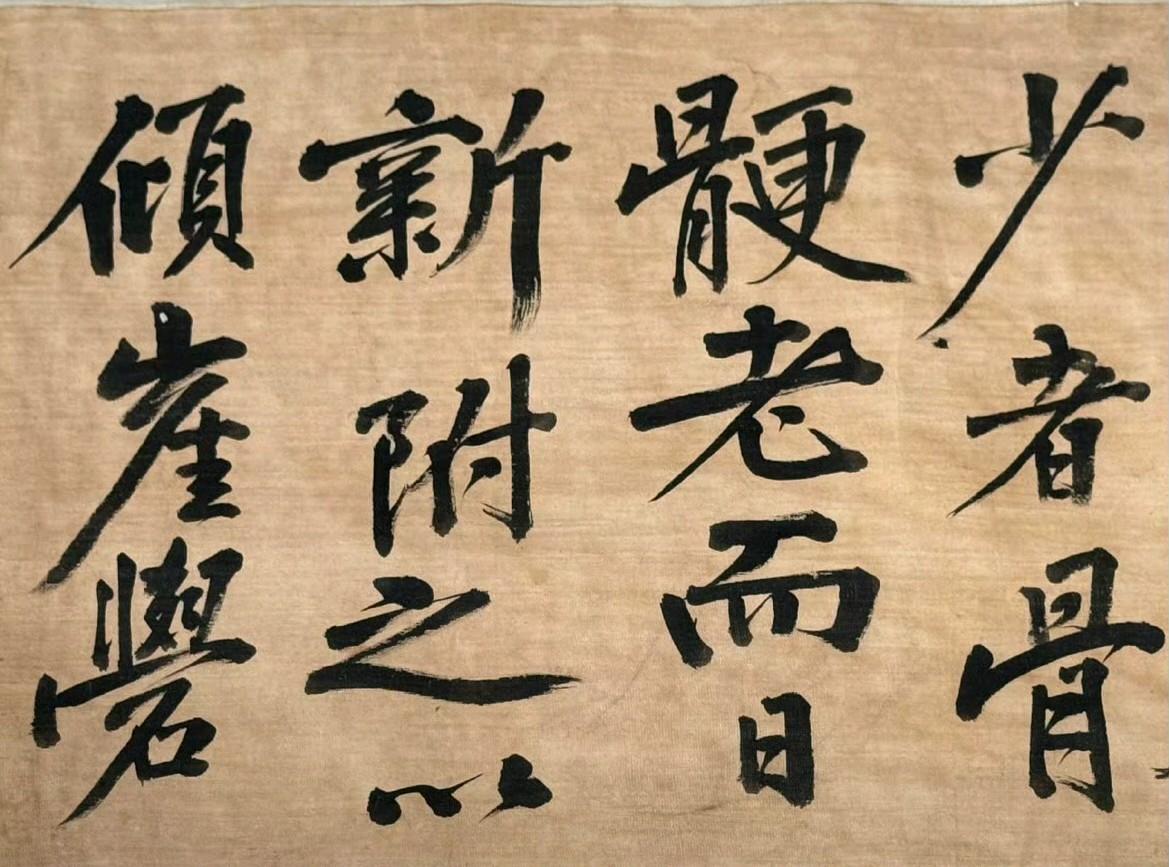 少者骨
骾老而日
新附之以
傾崖礐